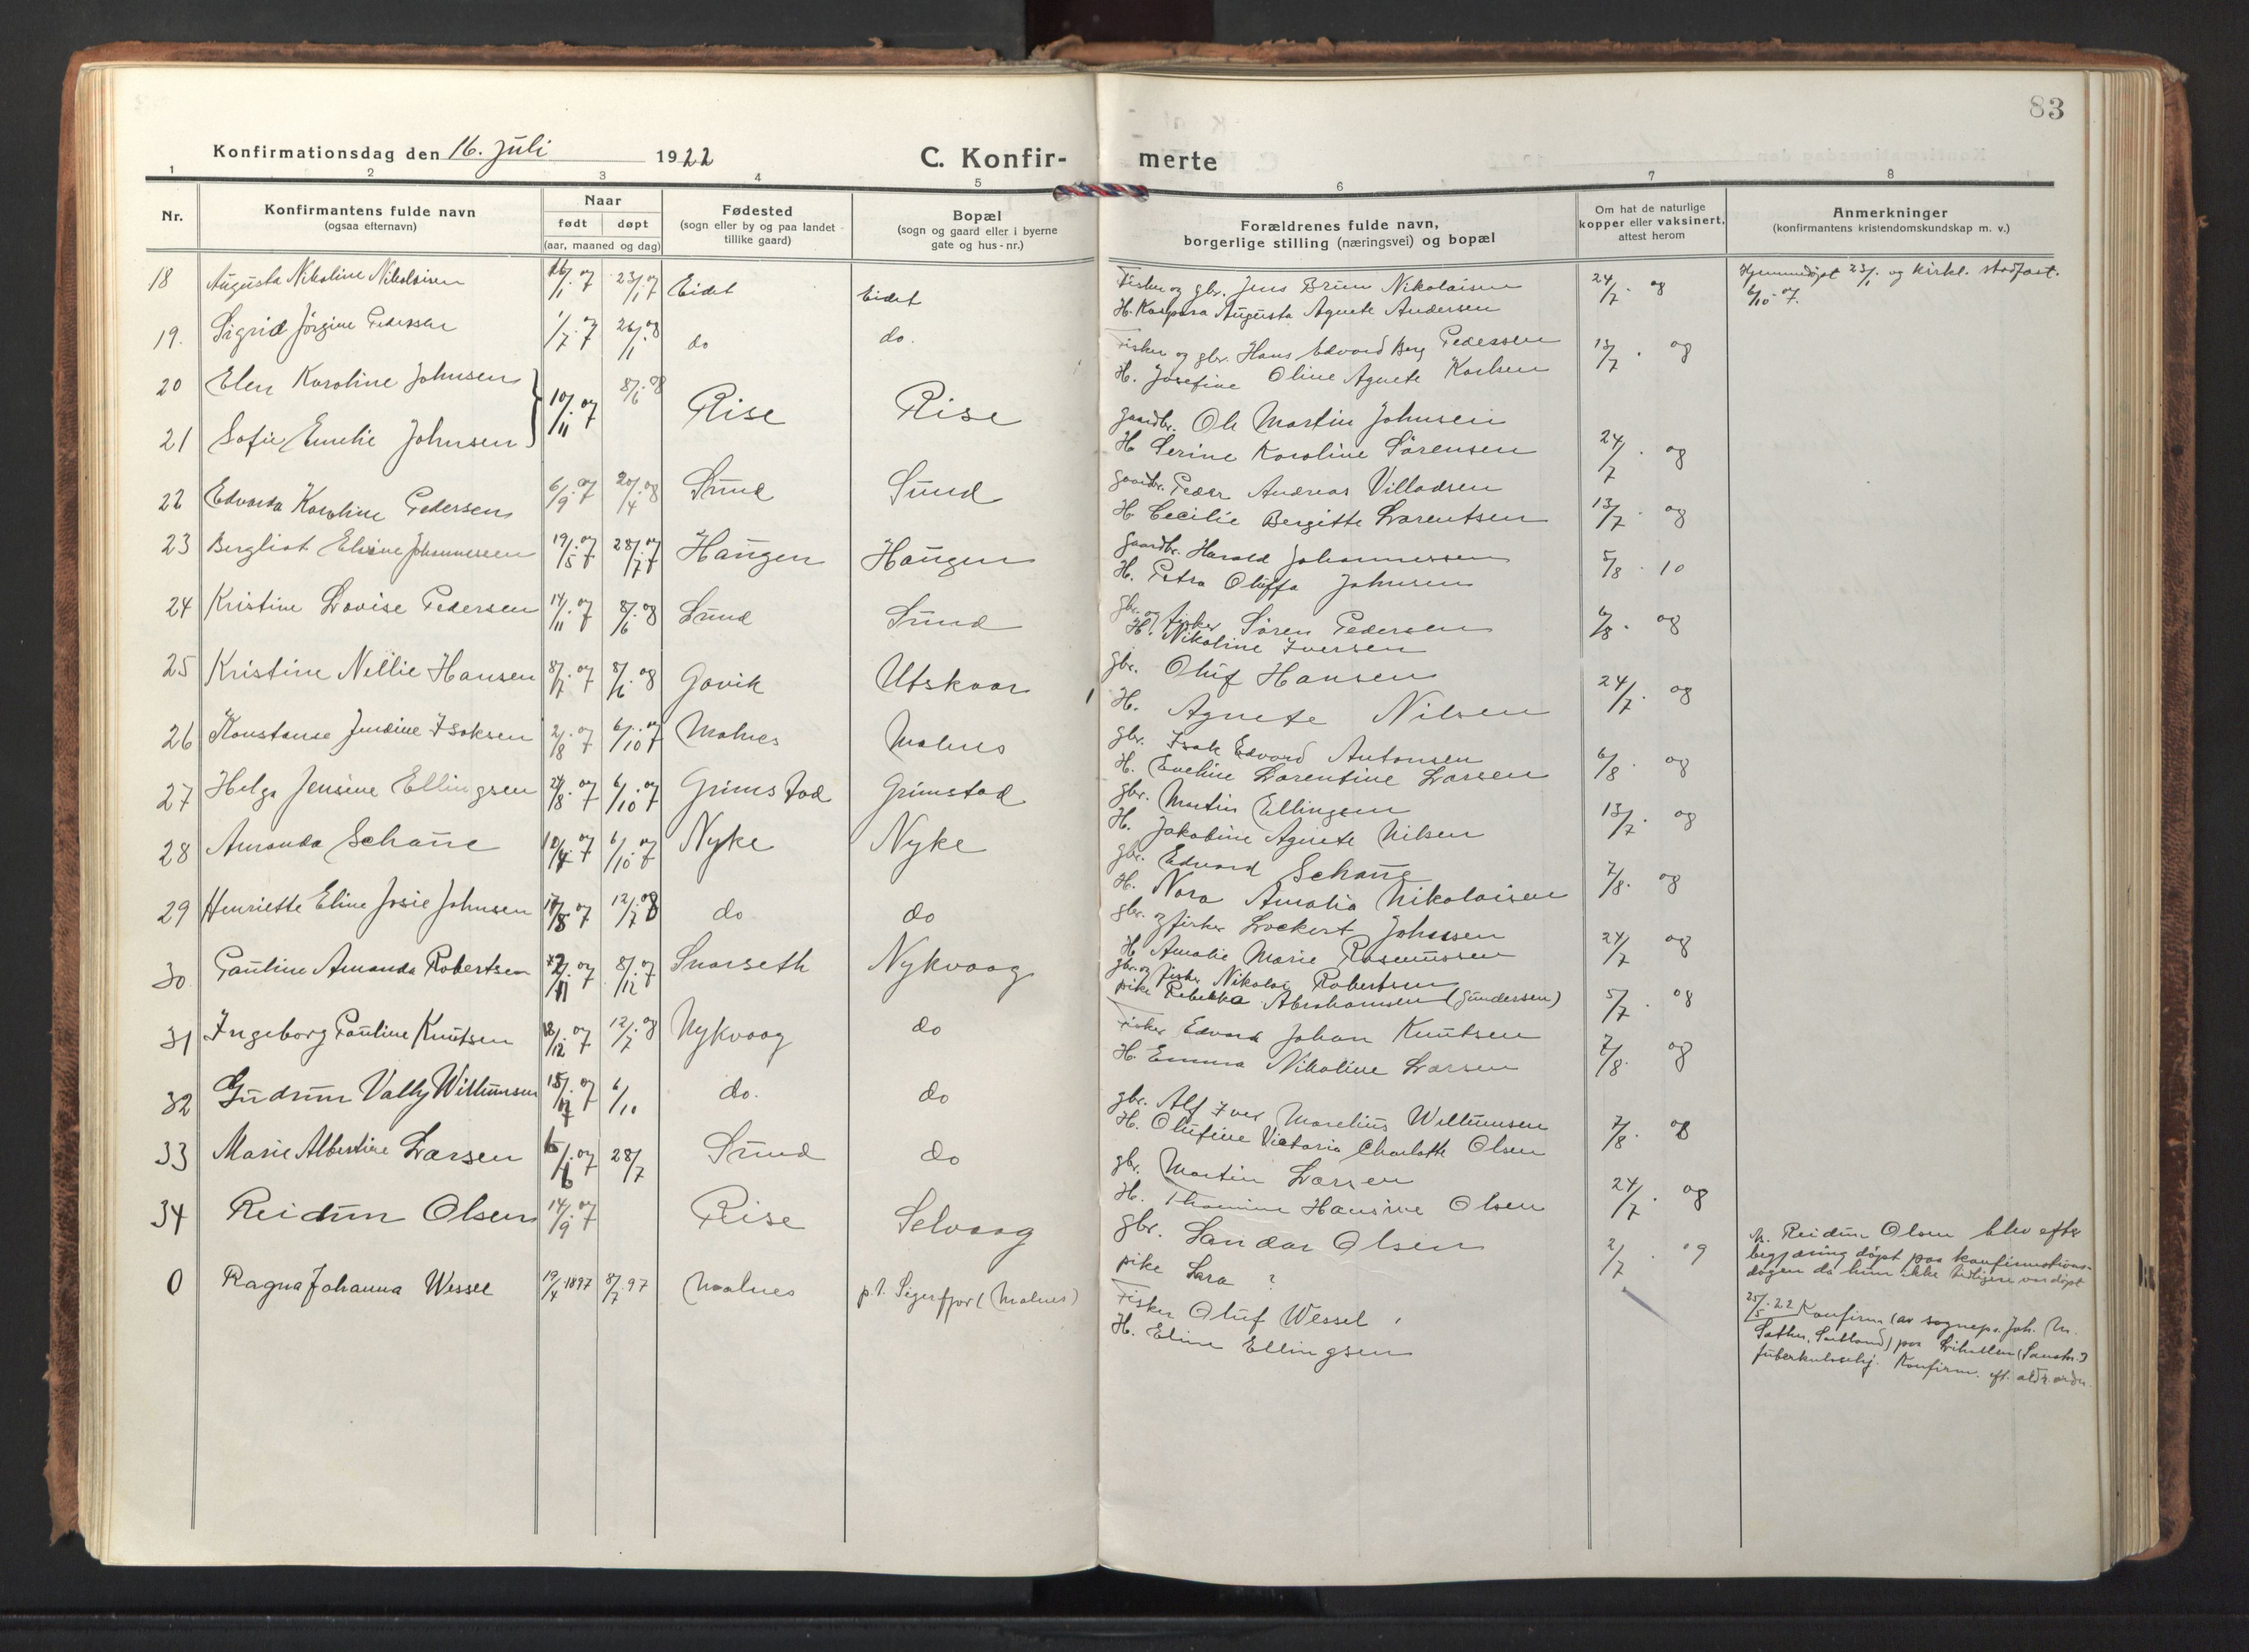 83
Konfirmationsdag den 16. juli 1922 C. Konfirmerte
1 2 3 4 5 6 7 8
Nr. Konfirmantens fulde navn (ogsaa efternavn) Naar født døpt (aar, maaned og dag) Fødested (sogn eller by og paa landet tillike gaard) Bopæl (sogn og gaard eller i byerne gate og hus-nr.) Forældrenes fulde navn, borgerlige stilling (næringsvei) og bopæl Om hat de naturlige kopper eller vaksinert, attest herom Anmerkninger (konfirmantens kristendomskundskap m. v.)
18 Augusta Nikoline Nikolaisen 16/1. 07 23/1 07 Eidet Eidet Fisker og gbr. Jens Brun Nikolaisen 24/7. 08 Hjemmedøpt 23/1. og kirkl. stadfæst.
H. Kaspara Augusta Agnete Andersen 6/10. 07.
19. Sigrid Jørgine Pedersen 1/7. 07 26/1. 08 do do. Fisker og gbr. Hans Edvard Berg Pedersen 13/7. 08
H. Josefine Oline Agnete Karlsen
20 Elen Karoline Johnsen 10/11. 07 8/6. 08 Rise Rise gaardbr. Ole Martin Johnsen
21 Sofie Emelie Johnsen H Serine Karoline Sørensen 24/7. 08
22 Edvarda Karoline Pedersen 6/9. 07 20/4. 08 Sund Sund gaardbr. Peder Andreas Villadsen
H Cecilie Bergitte Larentsen 13/7. 08
23 Bergliot Elvine Johannessen 19/5. 07 28/7. 07 Haugen Haugen gaardbr. Harald Johannessen
H. Petra Oluffa Johnsen 5/8. 10
24 Kristine Lovise Pedersen 14/11. 07 8/6. 08 Sund Sund gbr. og fisker Søren Pedersen 6/8. 08
H. Nikoline Iversen
25 Kristine Nellie Hansen 8/7. 07 8/6. 08 Gavik Utskaar gbr. Oluf Hansen
H. Agnete Nilsen 24/7. 08
26 Konstanse Jendine Isaksen 2/8. 07 6/10. 07 Malnes Malnes gbr. Isak Edvard Antonsen
H. Eveline Larentine Larsen 6/8. 08
27 Helga Jensine Ellingsen 24/8. 07 6/10. 07 Grimstad Grimstad gbr. Martin Ellingsen
H. Jakobine Agnete Nilsen 13/7. 08
28 Amanda Schaue 10/4. 07 6/10. 07 Nyke Nyke gbr. Edvard Schaue
H. Nora Amalia Nikolaisen 7/8. 08
29 Henriette Eline Josie Johnsen 07 12/7. 08 do do gbr. og fisker Lockert Johnsen
H Amalie Marie Rasmussen 24/7 08
30 Pauline Amanda Robertsen 07 8/12. 07 Snarseth Nykvaag gbr. og fisker Nikolai Robertsen
pike Rebekka Abrahamsen (Gundersen) 5/7. 08
31 Ingeborg Pauline Knutsen 18/12. 07 12/7. 08 Nykvaag do Fisker Edvard Johan Knutsen
H. Emma Nikoline Larsen 7/8. 08
32 Gudrun Vally Willumsen 07 6/10 do. do gbr. Alf Iver Marelius Willumsen
H. Olufine Victoria Charlotte Olsen 7/8. 08
33 Marie Albertine Larsen 07 28/7 Sund do gbr. Martin Larsen
H. Hansine Olsen 24/7. 08
34 Reidun Olsen 14/9. 07 Rise Selvaag gbr. Sandar Olsen Reidun Olsen blev efter
pike Sara ? 2/7. 09 begjæring døpt paa konfirmations-
dagen da hun ikke tidligere var døpt
0 Ragna Johanna Wessel 19/4 1897 8/7. 97 Maalnes p.t. Sigerfjord (Malnes) Fisker Oluf Wessel 25/5. 22 Konfirm. (av sognepr. Joh. M.
H. Eline Ellingsen Sortland) paa
tuberkulosehj. Konfirm. eft. aldr. ordn.